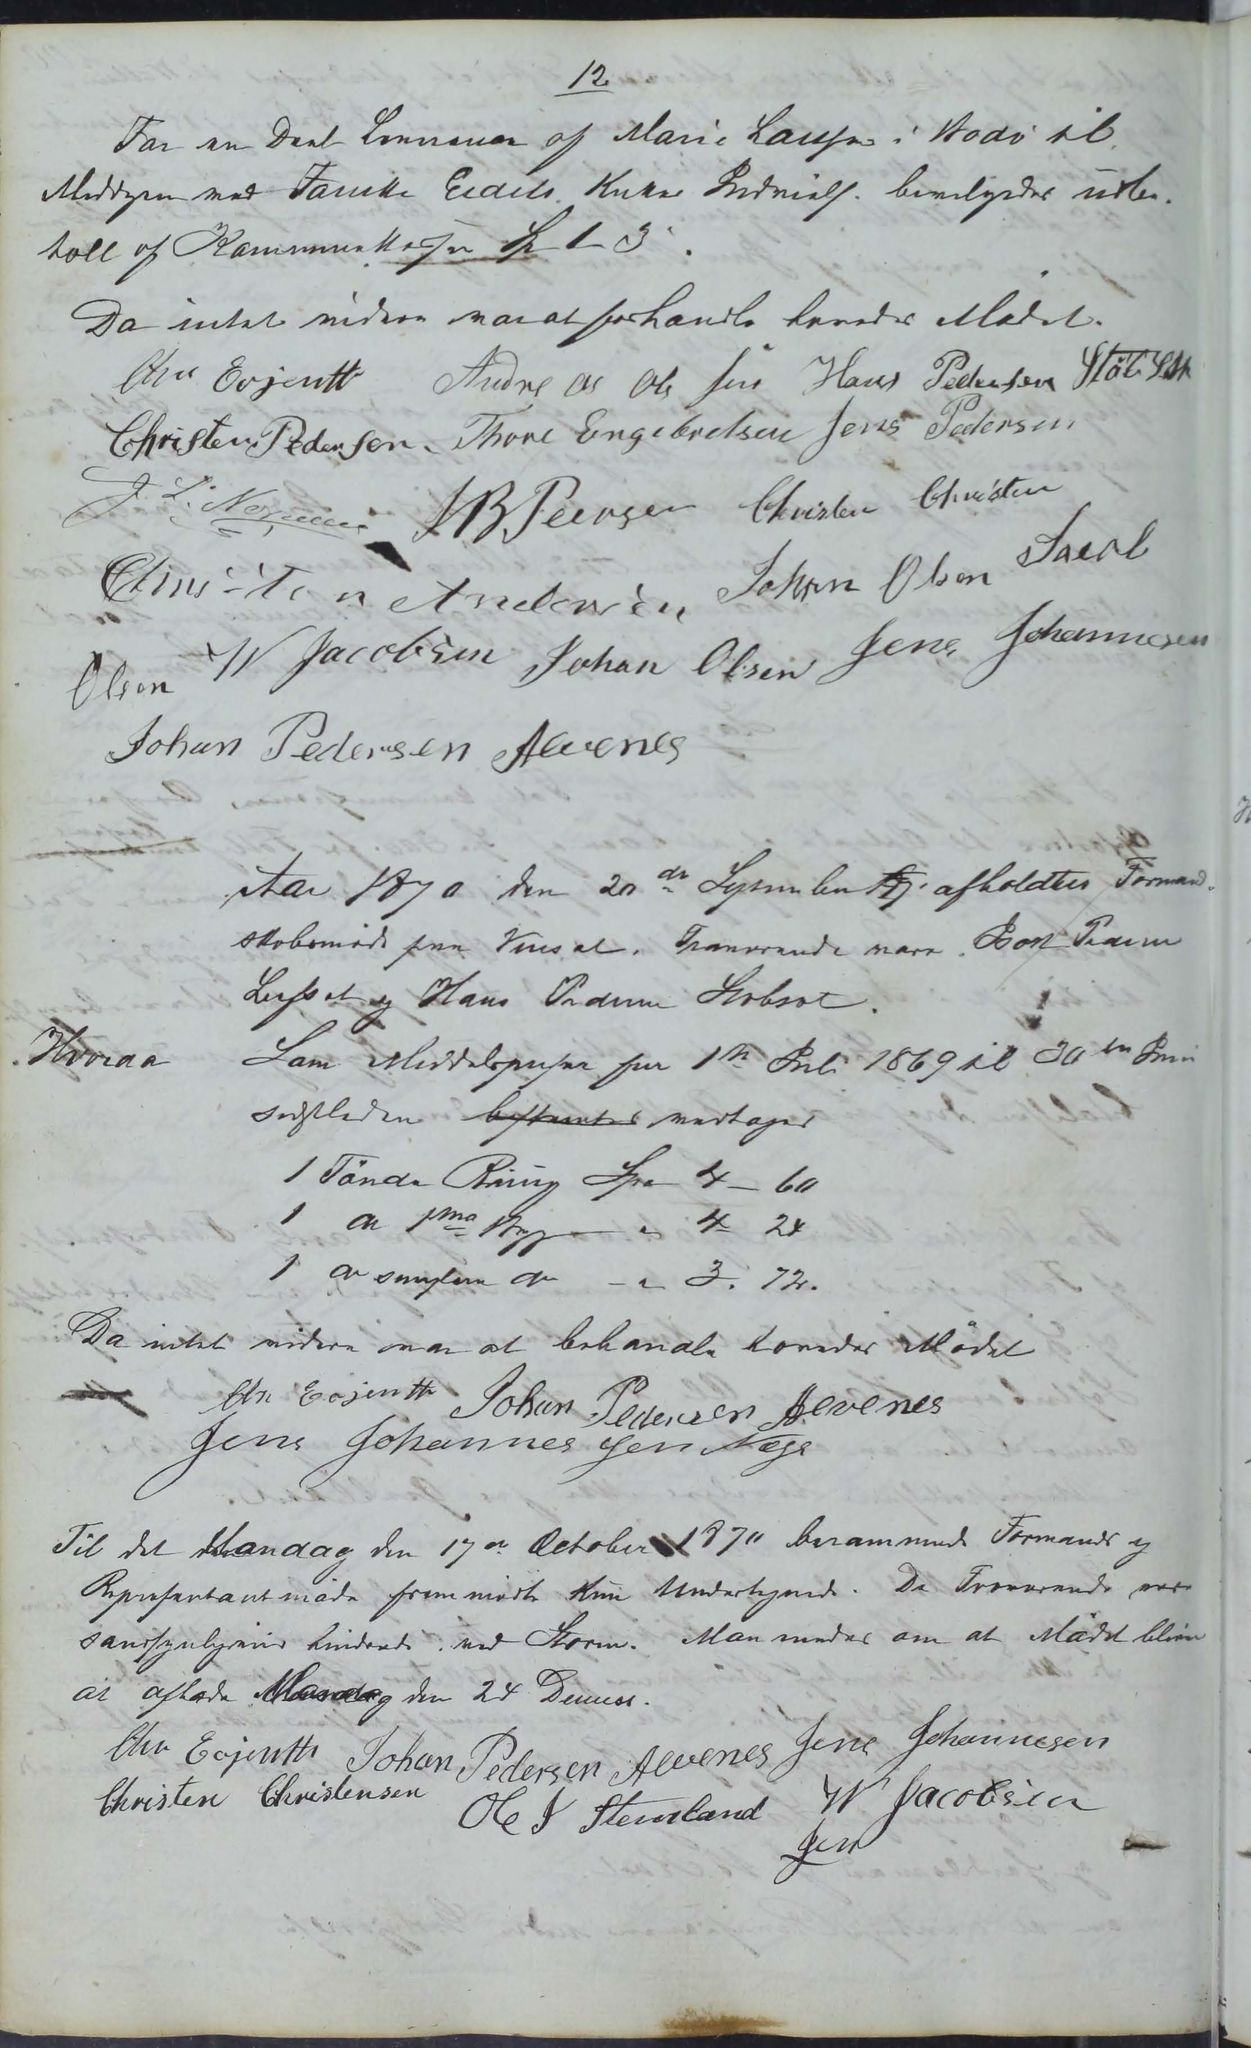 12
For en Deel Leverancer af Marie Laugsen i Bodø til
Middagen ved Faucke Eidets Kirkes Indvielse bevilgedes udbe-
talt af Kommunekassen Sp 1 - 3
Da intet videre var at forhandle hævedes Mødet.
Chr Evjenth Andr as Ols sen Hans Pedersen Støbset
Christen Pedersen. Thore Engebretsen Jens Pedersen
J. L. JB Peersen Christen Christen
Christen Andersen Johan Olsen Jacol
Olsen W Jacobsen Johan Olsen Jens Johannesen
Johan Pedersen Alvenes
Aar 1870 den 20de September afholdtes Formand-
skabsmøde paa Vensæt. Fraværende vare Pedersen
Leifset og Hans Pedersen Støbset.
Hvorda Som Middelpriser fra 1ste Juli 1869 til 30te Juni
sidstleden bestemtes vedtages
1 Tønde Rug Spd 4 - 60
1 do 1ma Byg - " 4 - 24
1 do simplere do - " 3. 72.
Da intet videre var at behandle hævedes Mødet
Chr Evjenth Johan Pedersen Alvenes
Jens Johannes sen Næss
Til det Mandag den 17de October 1870 berammede Formands og
Repræsentantmøde fremmødte kun Undertegnede. De Fraværende vare
sandsynligviis hindrede ved Storm. Man enedes om at Mødet bliver
at afholde Mandag den 24 Dennes.
Chr Evjenth Johan Pedersen Alvenes Jens Johannesen
Christen Christensen Ole J Stemland W Jacobsen
Jen